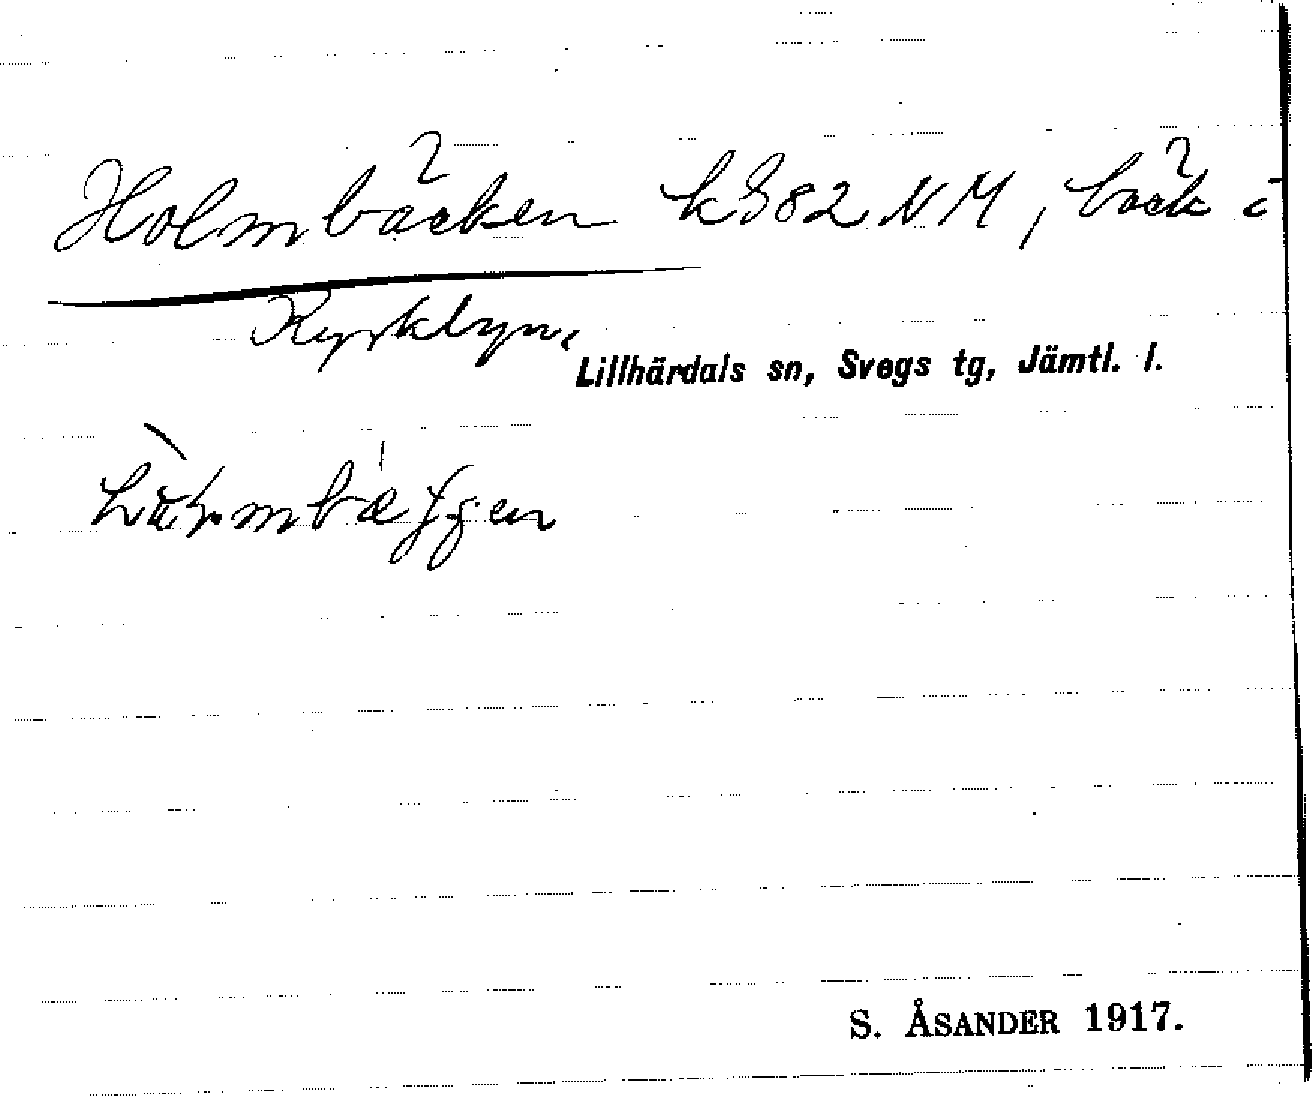 Holmbäcken k382 NM, bäck i
Kyrkbyn.
Lillhärdals sn, Svegs tg, Jämtl. l.
S. ÅSANDER 1917.